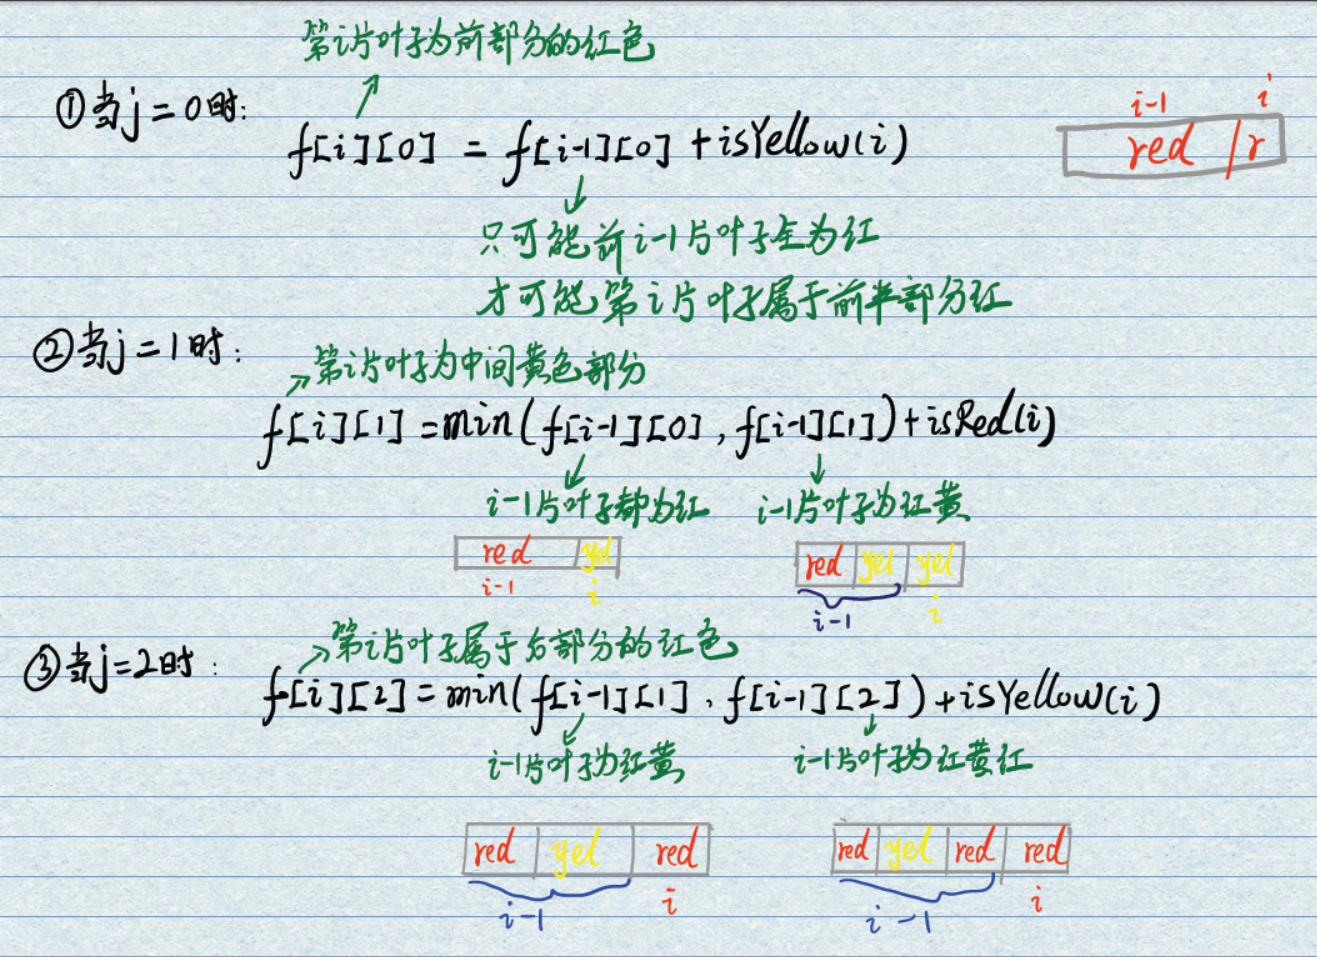 第i片叶子为前部分的红色
①当j=0时:
f[i][0] = f[i-1][0] + isYellow(i)
i-1 i
red / r
只可能前i-1片叶子全为红
才可能第i片叶子属于前半部分红
②当j=1时:
第i片叶子为中间黄色部分
f[i][1] = min(f[i-1][0], f[i-1][1]) + isRed(i)
i-1片叶子都为红 i-1片叶子为红黄
red yel red yel yel
i-1 i i-1 i
第i片叶子属于后部分的红色
③当j=2时:
f[i][2] = min(f[i-1][1], f[i-1][2]) + isYellow(i)
i-1片叶子为红黄 i-1片叶子为红黄红
red yel red red yel red red
i-1 i i-1 i